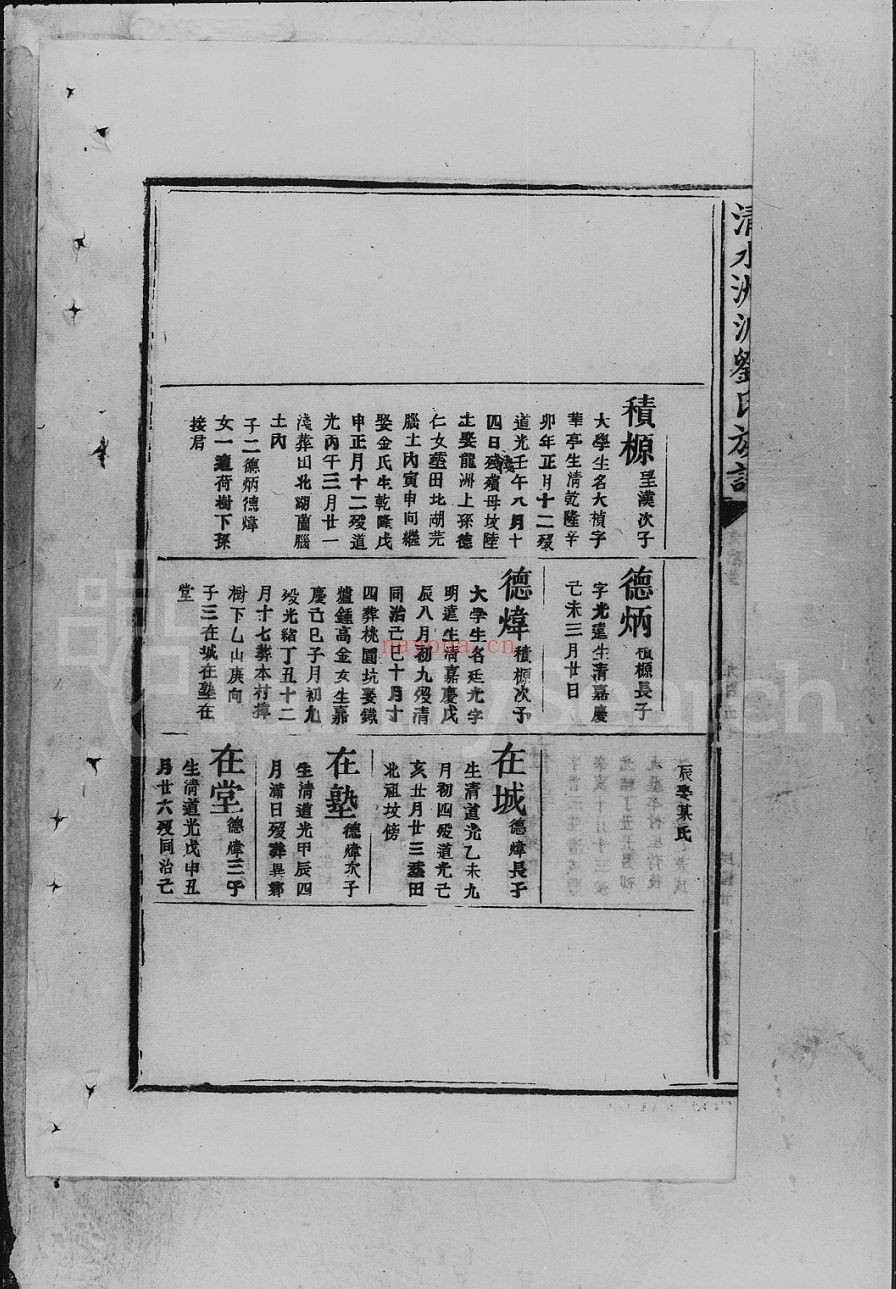 清水洲派劉氏族譜
積榞
呈漢次子
大學生名大楨字
華亭生清乾隆辛
卯年正月十二歿
道光壬午八月十
四日歿殯母坟陸
淺
土娶龍洲上孫德
仁女塟田北湖芫
腦土內寅申向繼
娶金氏生乾隆戊
申正月十二歿道
光丙午三月廿一
淺葬田北湖菌腦
土內
子二德炳德煒
女一適荷樹下孫
接君
德炳
積榞長子
字光遠生清嘉慶
己未三月廿日
德煒
積榞次子
大學生名廷光字
明遠生清嘉慶戊
辰八月初九歿清
同治己巳十月十
四葬桃園坑娶鐵
爐鍾高金女生嘉
慶己巳子月初九
歿光緒丁丑十二
月十七葬本村樟
樹下乙山庚向
子三在城在塾在
堂
辰娶某氏
在城
德煒長子
生清道光乙未九
月初四歿道光己
亥丑月廿三塟田
北祖坟傍
在塾
德煒次子
生清道光甲辰四
月滿日歿葬異鄉
在堂
德煒三子
生清道光戊申丑
月廿六歿同治己
nayona.cn
FamilySearch